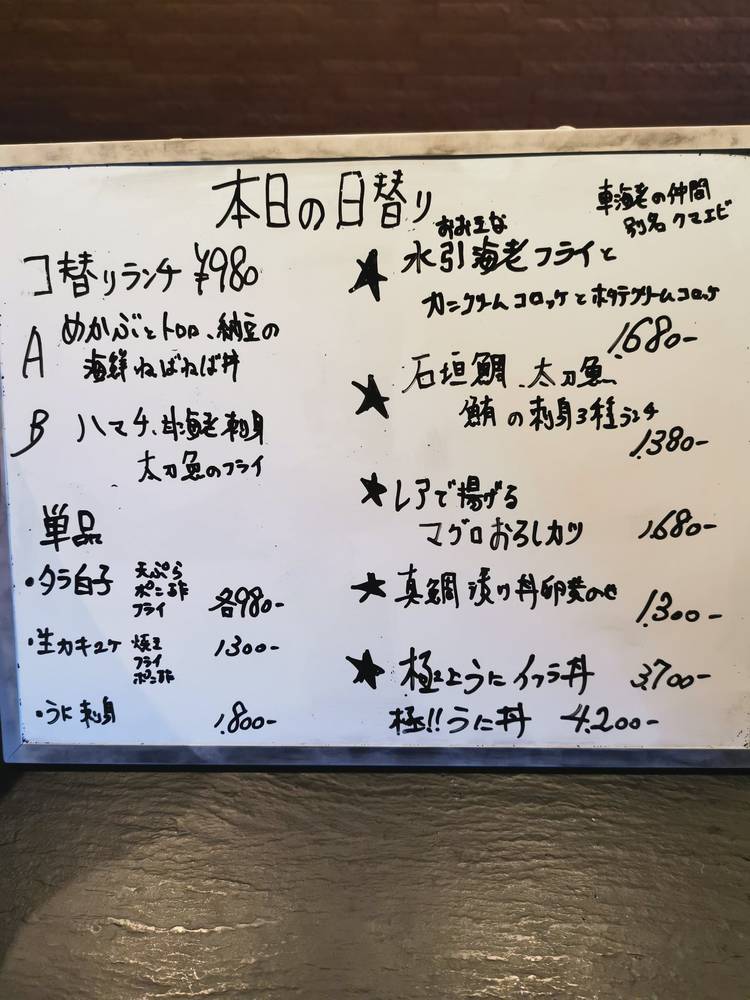 本日の日替り
日替りランチ ¥980
A めかぶとトロロ、納豆の
海鮮ねばねば丼
B ハマチ、甘海老刺身
太刀魚のフライ
単品
・タラ白子 天ぷら
ポン酢
フライ
各980-
・生カキ2ケ 焼き
フライ
ポン酢
1300-
・うに刺身 1,800-
車海老の仲間
別名 クマエビ
おおきな
★ 水引海老フライと
カニクリームコロッケとホタテクリームコロッケ
1.680-
★ 石垣鯛、太刀魚
鮪の刺身3種ランチ
1.380-
★ レアで揚げる
マグロおろしカツ 1,680-
★ 真鯛漬け丼卵黄のせ
1.300-
★ 極上うにイクラ丼 3,700-
極!!うに丼 4.200-